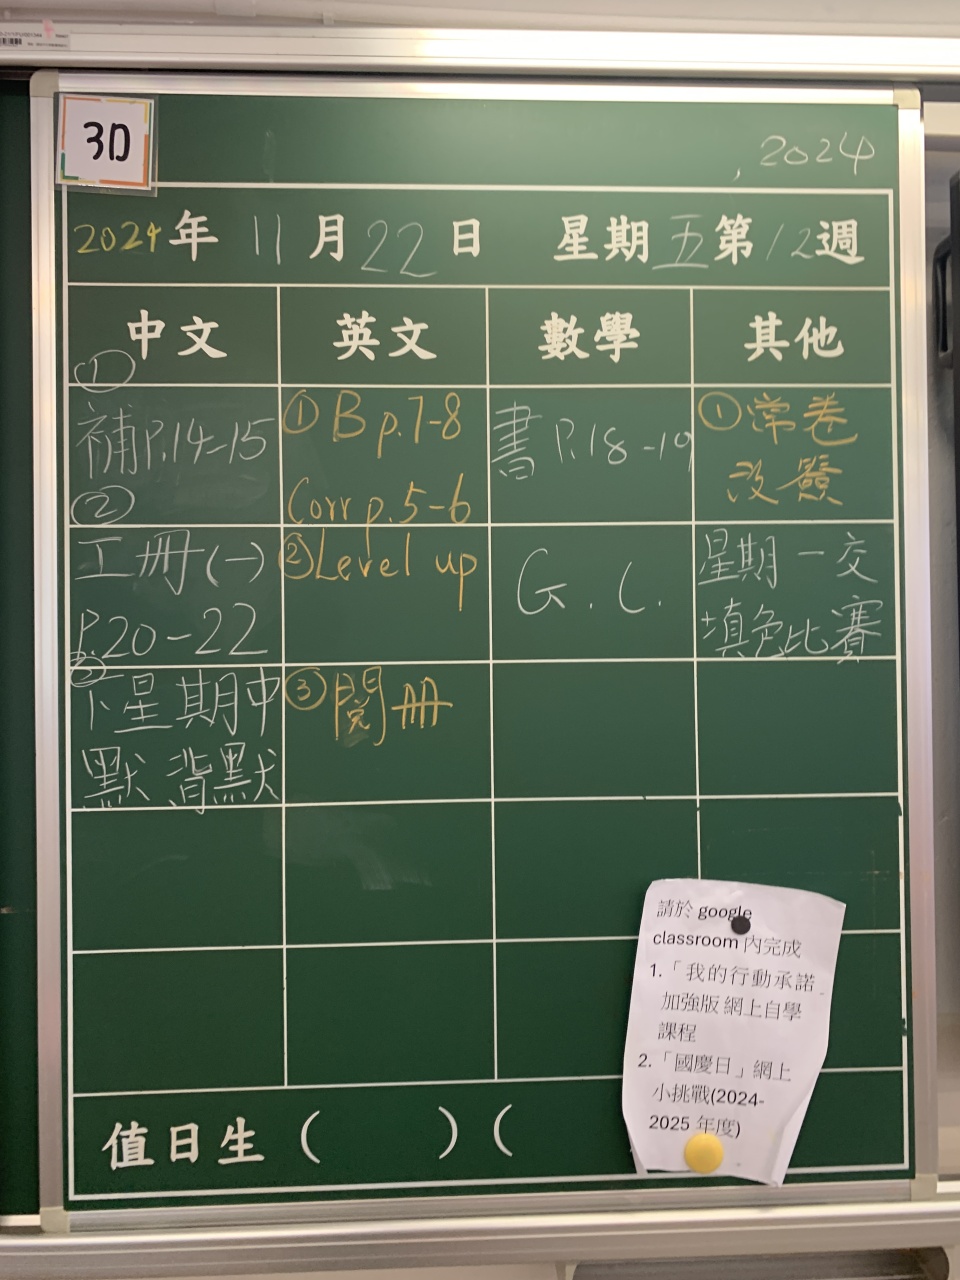 3D
, 2024
2024年 11月22日 星期五第12週
中文 英文 數學 其他
①
補P.14-15
②
工冊(一)
P.20-22
③
下星期中
默 背默
① B p.7-8
Corr p.5-6
② Level up
③ 閱冊
書 P.18-19
G.C.
① 常卷
改簽
星期一交
填色比賽
請於 google
classroom 內完成
1.「我的行動承諾
加強版 網上自學
課程
2.「國慶日」網上
小挑戰(2024-
2025 年度)
值日生 ( ) (